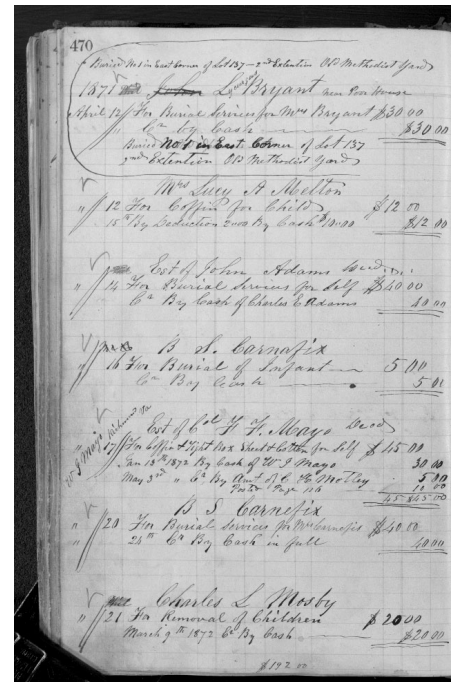 470
Buried No 1 in East Corner of Lot 137 - 2nd Extention Old Methodist Yard
1871 John Bryant near Poor House
April 12 For Burial Services for Mrs Bryant $30 00
" Cr by Cash $30 00
Buried No 1 in East Corner of Lot 137
2nd Extention Old Methodist Yard
Mrs Lucy A Melton
" 12 For Coffin for Child $12 00
15th By Deduction 2.00 By Cash $10.00 $12 00
Est of John Adams Decd
" 14 For Burial Services for Self $40 00
Cr By Cash of Charles E Adams 40 00
B S. Carnefix
" 16 For Burial of Infant 5 00
Cr By Cash 5 00
W J Mayo Richmond Va
Est of Col F. F. Mayo Decd
" 17 For Coffin & Tight Box Sheet & Cotton for Self $45 00
Jan 13th 1872 By Cash of W J Mayo 30 00
May 3rd " Cr By Amt of C. Motley 5 00
Page 116 10 00
45 $45.00
B S Carnefix
" 20 For Burial Services for Mrs Carnefix $40 00
" 24th Cr By Cash in full 40 00
Charles L Mosby
" 21 For Removal of Children $20 00
March 9th 1872 Cr By Cash $20 00
$192 00